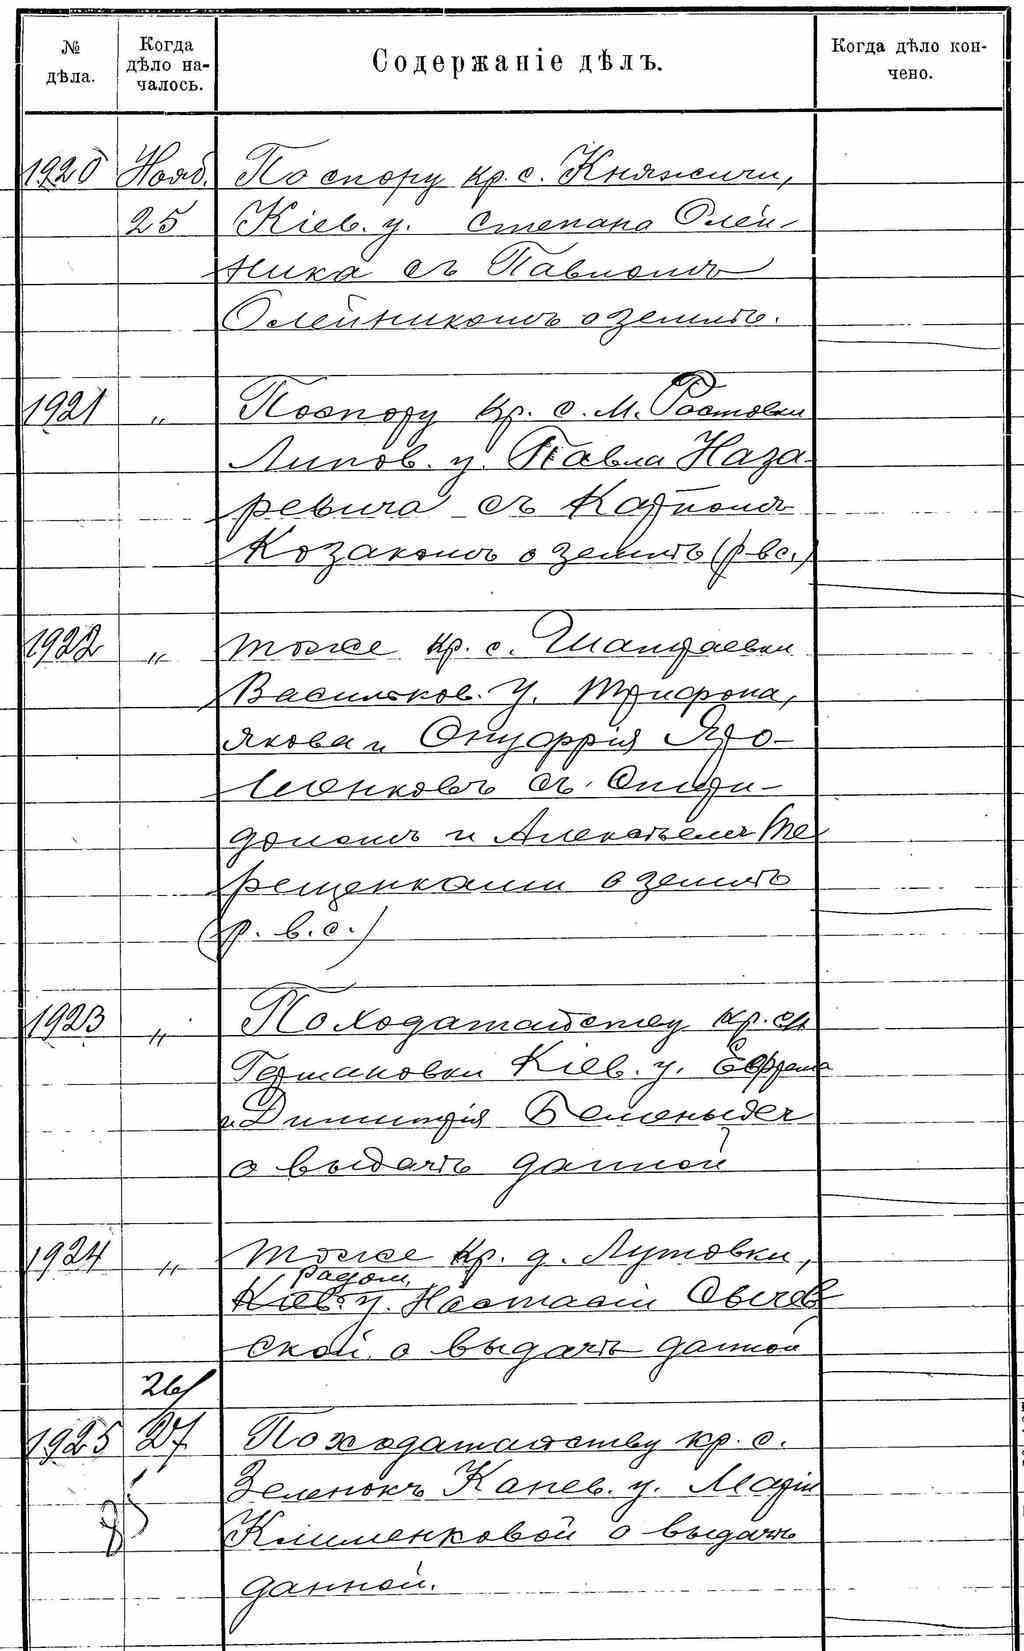 № дѣла.
Когда дѣло на-
чалось.
Содержаніе дѣлъ.
Когда дѣло кон-
чено.
1920 Нояб. По спору кр. с. Княжичи,
25 Кіев. у. Степана Олей-
ника съ Павломъ
Олейникомъ о землѣ.
1921 „ По спору кр. с. М. Ростовки
Липов. у. Павла Наза-
ревича съ Карпомъ
Козакомъ о землѣ (р. в с.)
1922 „ тоже кр. с. Шамраевки
Васильков. у. Трифона,
Якова и Онуфрія Яро-
шенковъ съ Спири-
дономъ и Алексѣемъ Те
рещенками о землѣ
(р. в. с.)
1923 „ По ходатайству кр.
Германовки Кіев. у. Ефрема
и Димитрія
о выдачѣ данной
1924 „ тоже кр. д. Лутовки,
радом.
Кіев. у. Настасіи Сычев
ской о выдачѣ данной
26/
1925 27 По ходатайству кр. с.
Зеленокъ Канев. у. Маріи
Клименковой о выдачѣ
данной.